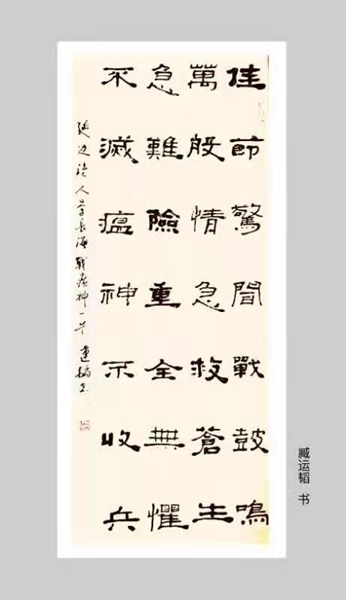 佳節驚聞戰鼓鳴
萬般情急救蒼生
急難險重全無懼
不滅瘟神不收兵
延边诗人李长海戰瘟神一首 運韜书
臧运韬 书